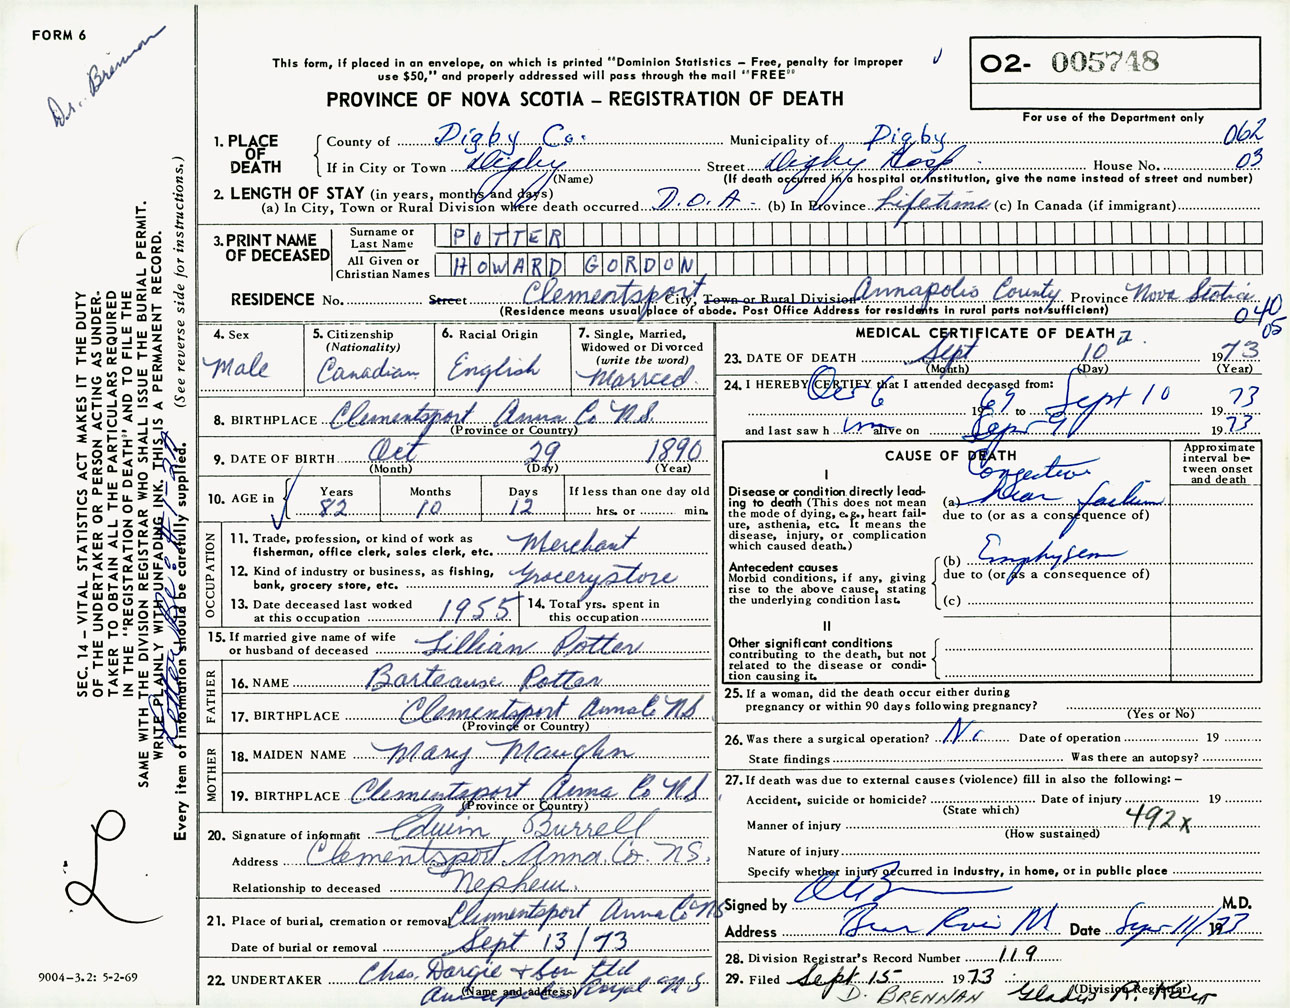 FORM 6
Dr. Brennan
This form, if placed in an envelope, on which is printed "Dominion Statistics – Free, penalty for improper
use $50," and properly addressed will pass through the mail "FREE"
PROVINCE OF NOVA SCOTIA – REGISTRATION OF DEATH
02- 005748
For use of the Department only
062
03
1. PLACE OF DEATH
County of Digby Co. Municipality of Digby
If in City or Town Digby Street Digby Hosp. House No.
(Name) (If death occurred in a hospital or institution, give the name instead of street and number)
2. LENGTH OF STAY (in years, months and days)
(a) In City, Town or Rural Division where death occurred D.O.A. (b) In Province Lifetime (c) In Canada (if immigrant)
3. PRINT NAME OF DECEASED
Surname or Last Name POTTER
All Given or Christian Names HOWARD GORDON
RESIDENCE No. Street Clementsport City, Town or Rural Division Annapolis County Province Nova Scotia
(Residence means usual place of abode. Post Office Address for residents in rural parts not sufficient)
040
05
SEC. 14 – VITAL STATISTICS ACT MAKES IT THE DUTY
OF THE UNDERTAKER OR PERSON ACTING AS UNDER-
TAKER TO OBTAIN ALL THE PARTICULARS REQUIRED
IN THE "REGISTRATION OF DEATH" AND TO FILE THE
SAME WITH THE DIVISION REGISTRAR WHO SHALL ISSUE THE BURIAL PERMIT.
WRITE PLAINLY WITH UNFADING INK. THIS IS A PERMANENT RECORD.
Every item of information should be carefully supplied. (See reverse side for instructions.)
4. Sex Male
5. Citizenship (Nationality) Canadian
6. Racial Origin English
7. Single, Married, Widowed or Divorced (write the word) Married
8. BIRTHPLACE Clementsport Anna Co N.S.
(Province or Country)
9. DATE OF BIRTH Oct 29 1890
(Month) (Day) (Year)
10. AGE in Years 82 Months 10 Days 12 If less than one day old hrs. or min.
OCCUPATION
11. Trade, profession, or kind of work as fisherman, office clerk, sales clerk, etc. Merchant
12. Kind of industry or business, as fishing, bank, grocery store, etc. Grocery store
13. Date deceased last worked at this occupation 1955 14. Total yrs. spent in this occupation
15. If married give name of wife or husband of deceased Lillian Potter
FATHER
16. NAME Potter
17. BIRTHPLACE Clementsport Anna Co N.S.
(Province or Country)
MOTHER
18. MAIDEN NAME Mary
19. BIRTHPLACE Clementsport Anna Co N.S.
(Province or Country)
20. Signature of informant Edwin Burrell
Address Clementsport Anna Co. N.S.
Relationship to deceased Nephew.
21. Place of burial, cremation or removal Clementsport Anna Co N S
Date of burial or removal Sept 13/73
22. UNDERTAKER Chas. Dargie & Son Ltd
(Name and address) Annapolis Royal N S
MEDICAL CERTIFICATE OF DEATH
23. DATE OF DEATH Sept 10 1973
(Month) (Day) (Year)
24. I HEREBY CERTIFY that I attended deceased from:
6 1969 to Sept 10 1973
and last saw h im alive on Sept 9 1973
CAUSE OF DEATH
Approximate interval between onset and death
I
Disease or condition directly lead-
ing to death (This does not mean
the mode of dying, e.g., heart fail-
ure, asthenia, etc. It means the
disease, injury, or complication
which caused death.)
(a) Congestive Heart failure
due to (or as a consequence of)
Antecedent causes
Morbid conditions, if any, giving
rise to the above cause, stating
the underlying condition last.
(b) Emphysema
due to (or as a consequence of)
(c)
II
Other significant conditions
contributing to the death, but not
related to the disease or condi-
tion causing it.
25. If a woman, did the death occur either during
pregnancy or within 90 days following pregnancy?
(Yes or No)
26. Was there a surgical operation? No Date of operation 19
State findings Was there an autopsy?
27. If death was due to external causes (violence) fill in also the following: –
Accident, suicide or homicide? Date of injury 19
(State which)
Manner of injury 492x
(How sustained)
Nature of injury
Specify whether injury occurred in industry, in home, or in public place
Signed by M.D.
Address Bear River NS Date Sept 11/1973
28. Division Registrar's Record Number 119
29. Filed Sept. 15 1973
(Division Registrar)
D. BRENNAN Gladys R.
9004–3.2: 5-2-69